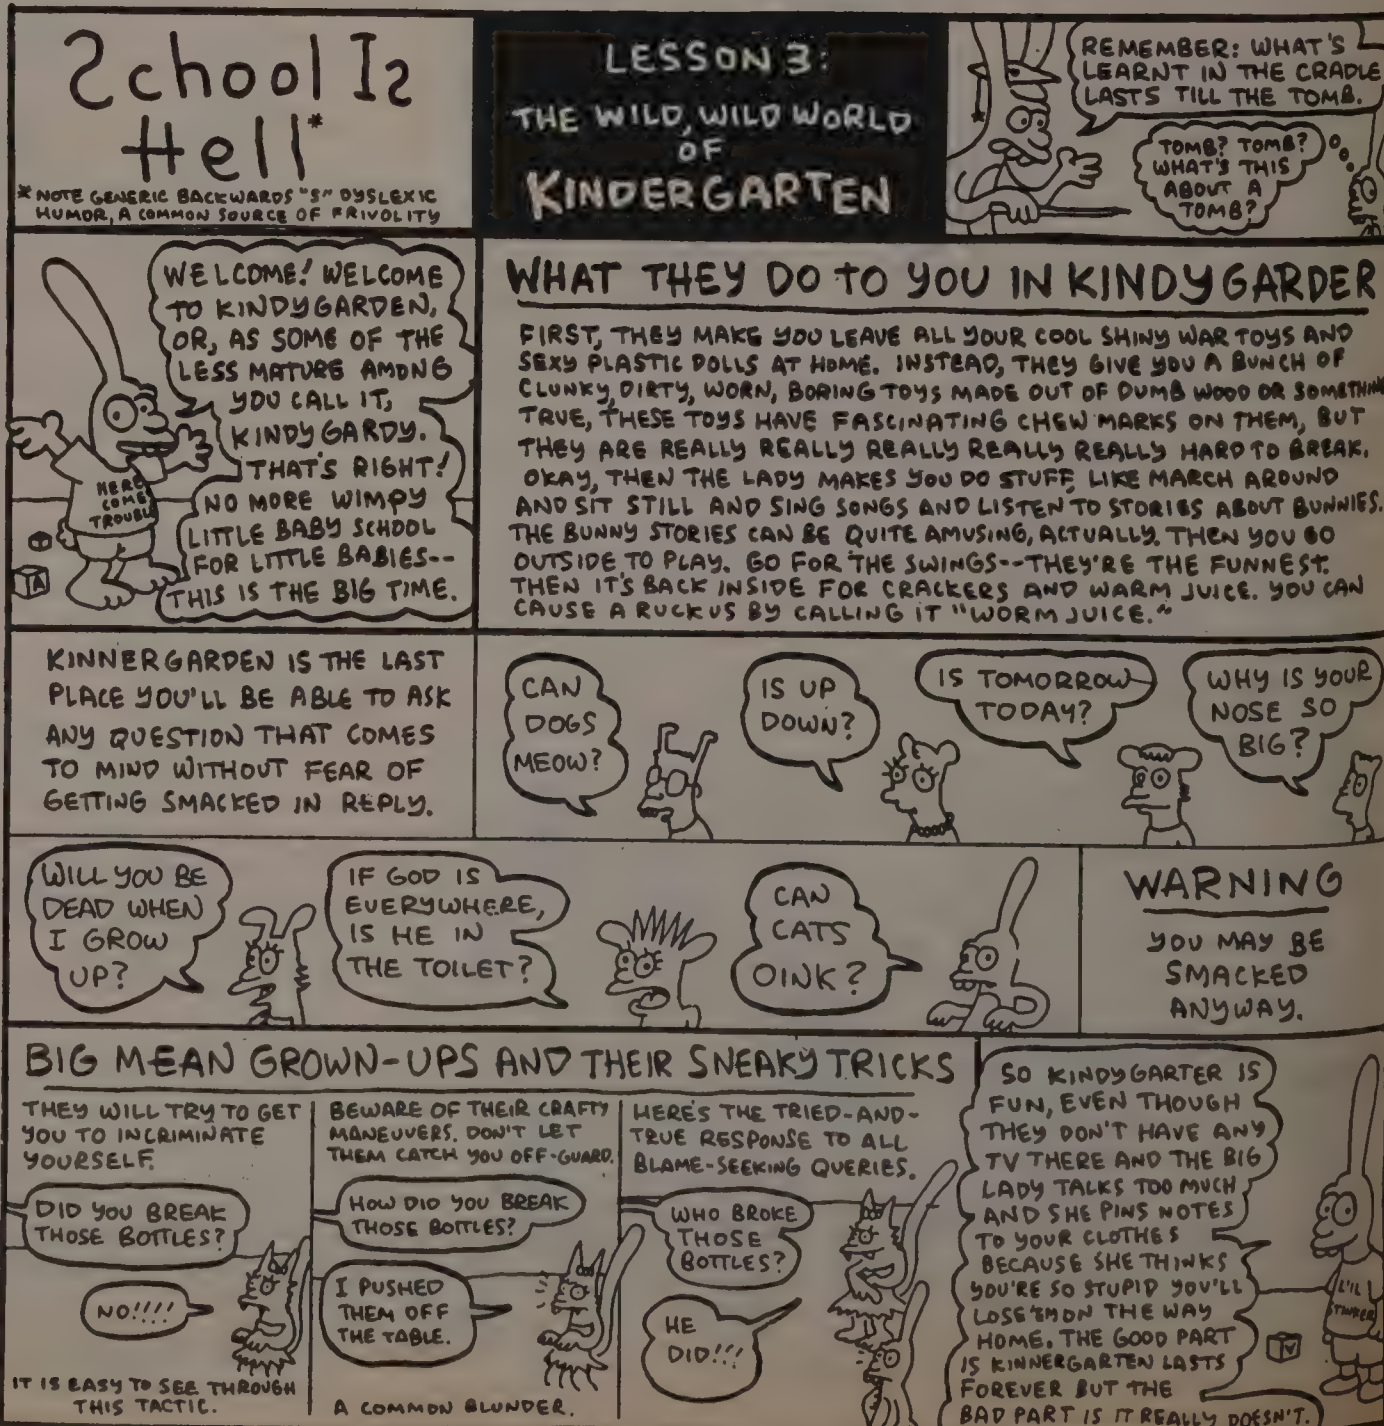 School Is
Hell*
* NOTE GENERIC BACKWARDS "S" DYSLEXIC
HUMOR, A COMMON SOURCE OF FRIVOLITY
LESSON 3:
THE WILD, WILD WORLD
OF
KINDERGARTEN
REMEMBER: WHAT'S
LEARNT IN THE CRADLE
LASTS TILL THE TOMB.
TOMB? TOMB?
WHAT'S THIS
ABOUT A
TOMB?
WELCOME! WELCOME
TO KINDYGARDEN,
OR, AS SOME OF THE
LESS MATURE AMONG
YOU CALL IT,
KINDYGARDY.
THAT'S RIGHT!
NO MORE WIMPY
LITTLE BABY SCHOOL
FOR LITTLE BABIES--
THIS IS THE BIG TIME.
HERE
COMES
TROUBL
A
WHAT THEY DO TO YOU IN KINDYGARDER
FIRST, THEY MAKE YOU LEAVE ALL YOUR COOL SHINY WAR TOYS AND
SEXY PLASTIC DOLLS AT HOME. INSTEAD, THEY GIVE YOU A BUNCH OF
CLUNKY, DIRTY, WORN, BORING TOYS MADE OUT OF DUMB WOOD OR SOMETHIN
TRUE, THESE TOYS HAVE FASCINATING CHEW MARKS ON THEM, BUT
THEY ARE REALLY REALLY REALLY REALLY REALLY HARD TO BREAK.
OKAY, THEN THE LADY MAKES YOU DO STUFF, LIKE MARCH AROUND
AND SIT STILL AND SING SONGS AND LISTEN TO STORIES ABOUT BUNNIES.
THE BUNNY STORIES CAN BE QUITE AMUSING, ACTUALLY. THEN YOU GO
OUTSIDE TO PLAY. GO FOR THE SWINGS--THEY'RE THE FUNNEST.
THEN IT'S BACK INSIDE FOR CRACKERS AND WARM JUICE. YOU CAN
CAUSE A RUCKUS BY CALLING IT "WORM JUICE."
KINNERGARDEN IS THE LAST
PLACE YOU'LL BE ABLE TO ASK
ANY QUESTION THAT COMES
TO MIND WITHOUT FEAR OF
GETTING SMACKED IN REPLY.
CAN
DOGS
MEOW?
IS UP
DOWN?
IS TOMORROW
TODAY?
WHY IS YOUR
NOSE SO
BIG?
WILL YOU BE
DEAD WHEN
I GROW
UP?
IF GOD IS
EVERYWHERE,
IS HE IN
THE TOILET?
CAN
CATS
OINK?
WARNING
YOU MAY BE
SMACKED
ANYWAY.
BIG MEAN GROWN-UPS AND THEIR SNEAKY TRICKS
THEY WILL TRY TO GET
YOU TO INCRIMINATE
YOURSELF.
DID YOU BREAK
THOSE BOTTLES?
NO!!!!
IT IS EASY TO SEE THROUGH
THIS TACTIC.
BEWARE OF THEIR CRAFTY
MANEUVERS. DON'T LET
THEM CATCH YOU OFF-GUARD.
HOW DID YOU BREAK
THOSE BOTTLES?
I PUSHED
THEM OFF
THE TABLE.
A COMMON BLUNDER.
HERE'S THE TRIED-AND-
TRUE RESPONSE TO ALL
BLAME-SEEKING QUERIES.
WHO BROKE
THOSE
BOTTLES?
HE
DID!!!
SO KINDYGARTER IS
FUN, EVEN THOUGH
THEY DON'T HAVE ANY
TV THERE AND THE BIG
LADY TALKS TOO MUCH
AND SHE PINS NOTES
TO YOUR CLOTHES
BECAUSE SHE THINKS
YOU'RE SO STUPID YOU'LL
LOSE 'EM ON THE WAY
HOME. THE GOOD PART
IS KINNERGARTEN LASTS
FOREVER BUT THE
BAD PART IS IT REALLY DOESN'T.
L'IL
STINKER